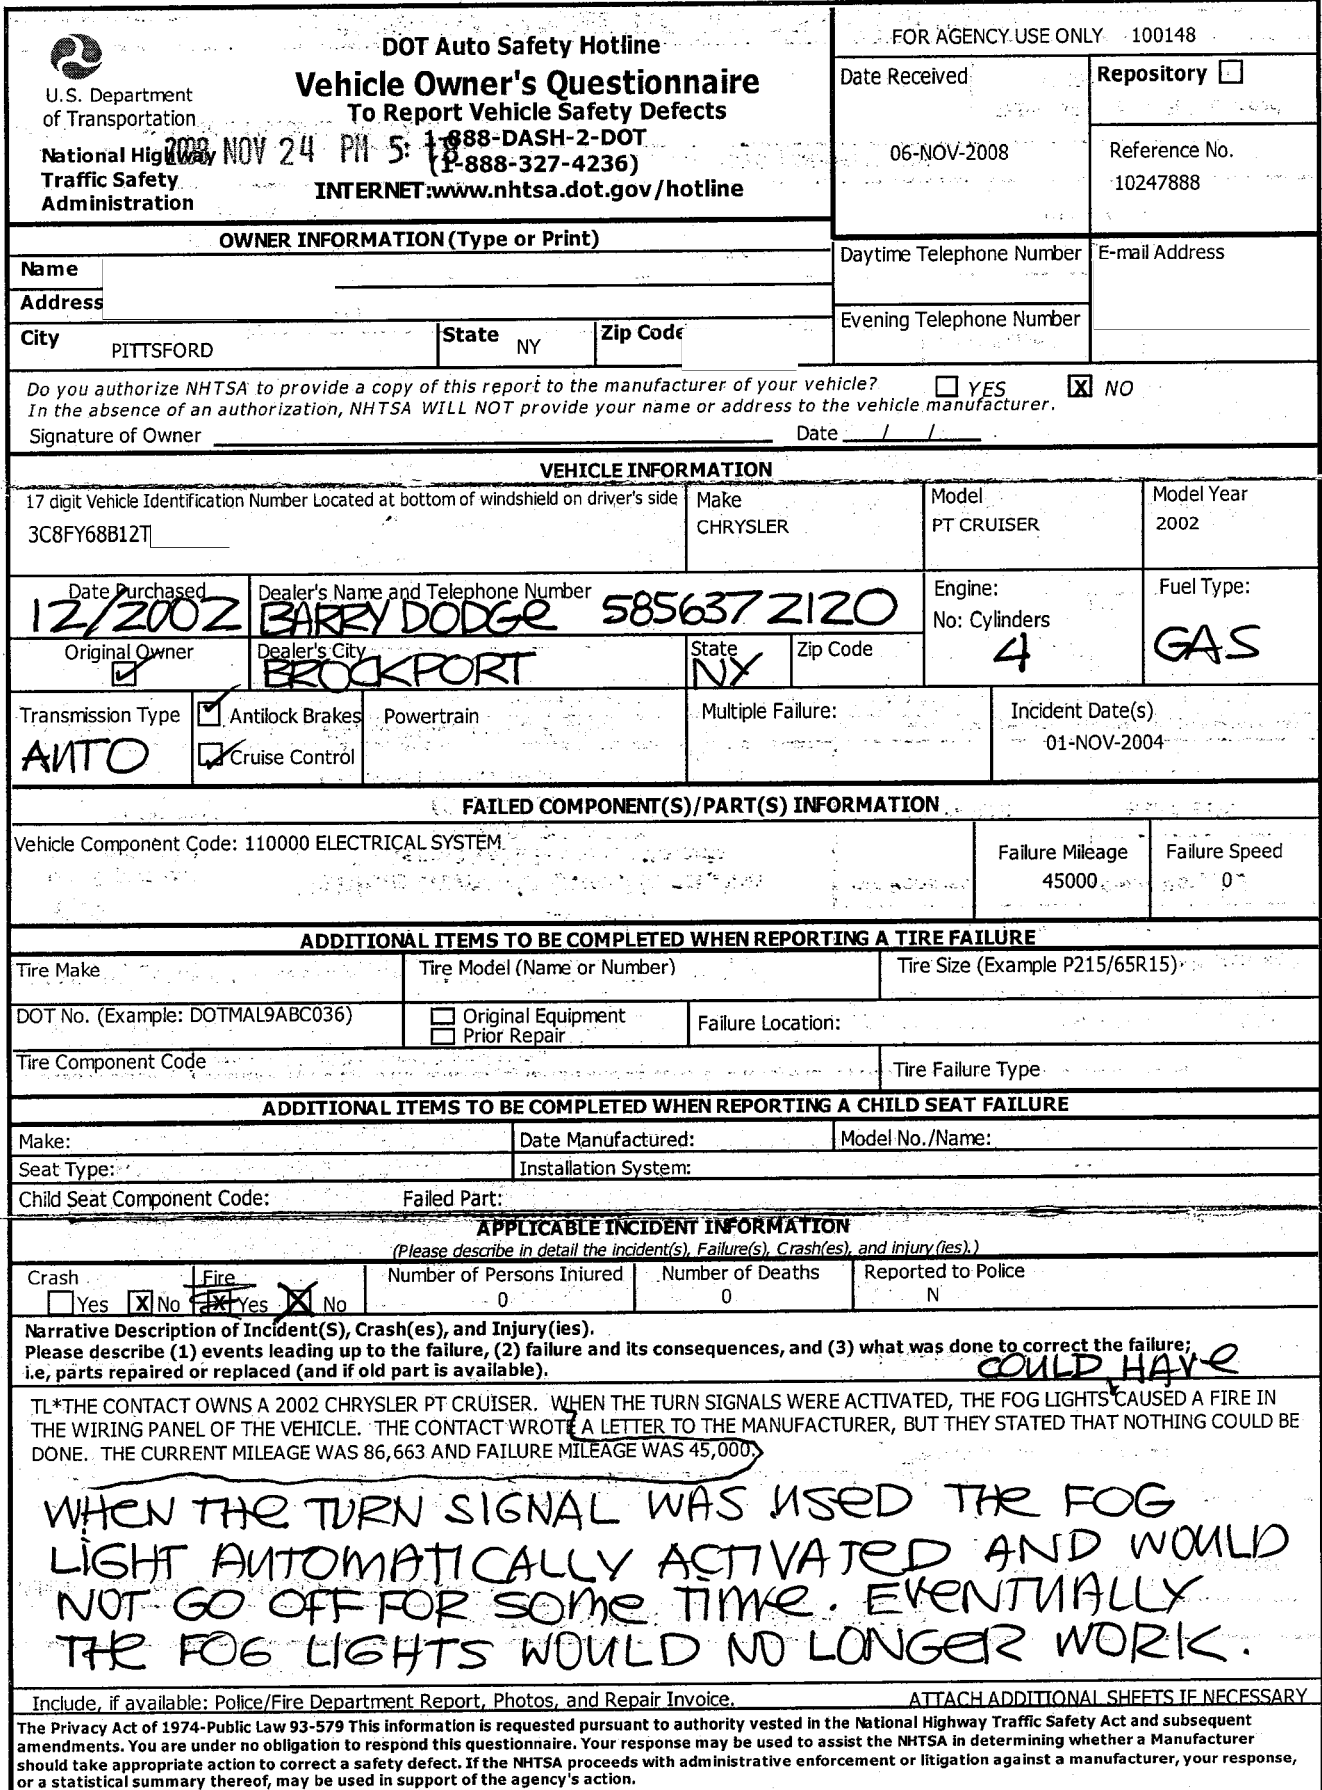 DOT Auto Safety Hotline
Vehicle Owner's Questionnaire
To Report Vehicle Safety Defects
1-888-DASH-2-DOT
(1-888-327-4236)
INTERNET:www.nhtsa.dot.gov/hotline
U.S. Department
of Transportation
National Highway
Traffic Safety
Administration
NOV 24 PM 5:
FOR AGENCY USE ONLY 100148
Date Received
06-NOV-2008
Repository
Reference No.
10247888
OWNER INFORMATION (Type or Print)
Name
Address
City PITTSFORD State NY Zip Code
Daytime Telephone Number E-mail Address
Evening Telephone Number
Do you authorize NHTSA to provide a copy of this report to the manufacturer of your vehicle? YES X NO
In the absence of an authorization, NHTSA WILL NOT provide your name or address to the vehicle manufacturer.
Signature of Owner Date / /
VEHICLE INFORMATION
17 digit Vehicle Identification Number Located at bottom of windshield on driver's side
3C8FY68B12T
Make
CHRYSLER
Model
PT CRUISER
Model Year
2002
Date Purchased
12/2002
Dealer's Name and Telephone Number
BARRY DODGE 585 637 2120
Engine:
No: Cylinders
4
Fuel Type:
GAS
Original Owner
Dealer's City
BROCKPORT
State
NY
Zip Code
Transmission Type
AUTO
Antilock Brakes
Cruise Control
Powertrain
Multiple Failure:
Incident Date(s)
01-NOV-2004
FAILED COMPONENT(S)/PART(S) INFORMATION
Vehicle Component Code: 110000 ELECTRICAL SYSTEM
Failure Mileage
45000
Failure Speed
0
ADDITIONAL ITEMS TO BE COMPLETED WHEN REPORTING A TIRE FAILURE
Tire Make Tire Model (Name or Number) Tire Size (Example P215/65R15)
DOT No. (Example: DOTMAL9ABC036)
Original Equipment
Prior Repair
Failure Location:
Tire Component Code Tire Failure Type
ADDITIONAL ITEMS TO BE COMPLETED WHEN REPORTING A CHILD SEAT FAILURE
Make: Date Manufactured: Model No./Name:
Seat Type: Installation System:
Child Seat Component Code: Failed Part:
APPLICABLE INCIDENT INFORMATION
(Please describe in detail the incident(s), Failure(s), Crash(es), and injury(ies).)
Crash
Yes X No
Fire
X Yes X No
Number of Persons Injured
0
Number of Deaths
0
Reported to Police
N
Narrative Description of Incident(S), Crash(es), and Injury(ies).
Please describe (1) events leading up to the failure, (2) failure and its consequences, and (3) what was done to correct the failure;
i.e, parts repaired or replaced (and if old part is available).
COULD HAVE
TL*THE CONTACT OWNS A 2002 CHRYSLER PT CRUISER. WHEN THE TURN SIGNALS WERE ACTIVATED, THE FOG LIGHTS CAUSED A FIRE IN
THE WIRING PANEL OF THE VEHICLE. THE CONTACT WROTE A LETTER TO THE MANUFACTURER, BUT THEY STATED THAT NOTHING COULD BE
DONE. THE CURRENT MILEAGE WAS 86,663 AND FAILURE MILEAGE WAS 45,000.
WHEN THE TURN SIGNAL WAS USED THE FOG
LIGHT AUTOMATICALLY ACTIVATED AND WOULD
NOT GO OFF FOR SOME TIME. EVENTUALLY
THE FOG LIGHTS WOULD NO LONGER WORK.
Include, if available: Police/Fire Department Report, Photos, and Repair Invoice. ATTACH ADDITIONAL SHEETS IF NECESSARY
The Privacy Act of 1974-Public Law 93-579 This information is requested pursuant to authority vested in the National Highway Traffic Safety Act and subsequent
amendments. You are under no obligation to respond this questionnaire. Your response may be used to assist the NHTSA in determining whether a Manufacturer
should take appropriate action to correct a safety defect. If the NHTSA proceeds with administrative enforcement or litigation against a manufacturer, your response,
or a statistical summary thereof, may be used in support of the agency's action.